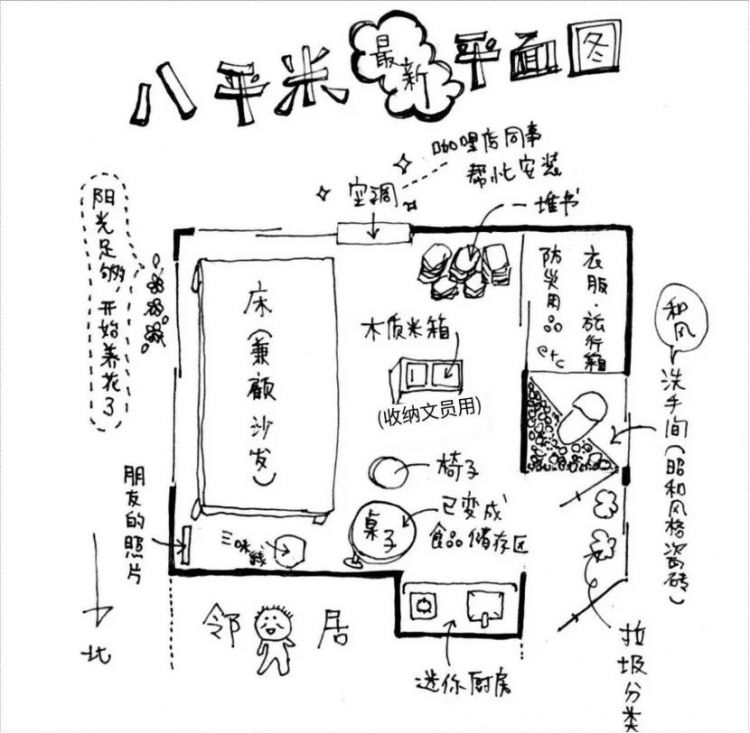 八平米最新平面图
咖哩店同事
帮忙安装
空调
堆书
阳光足够 开始养花了
床(兼顾沙发)
木质米箱
(收纳文员用)
衣服·旅行箱
防災用品
etc
和风
洗手间(昭和风格瓷砖)
椅子
朋友的照片
三味线
桌子
已变成
食品储存区
北
邻居
迷你厨房
垃圾分类